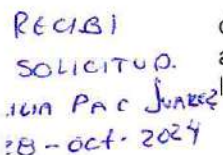 RECIBI
SOLICITUD.
PAC JUAREZ
28-oct-2024